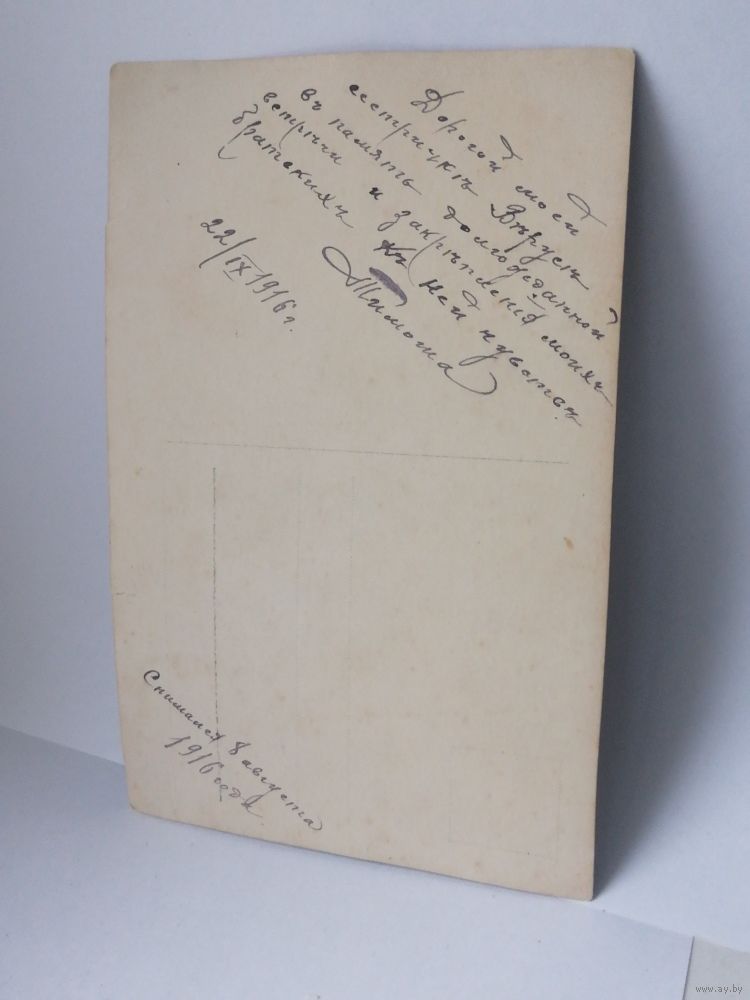 Дорогой моей
сестричкѣ Вѣрусѣ
въ память долгожданной
встрѣчи и закрѣпленія моихъ
братскихъ къ ней чувствъ.
Тимоша
22/IX 1916 г.
Снимался 8 августа
1916 года.
www.ay.by